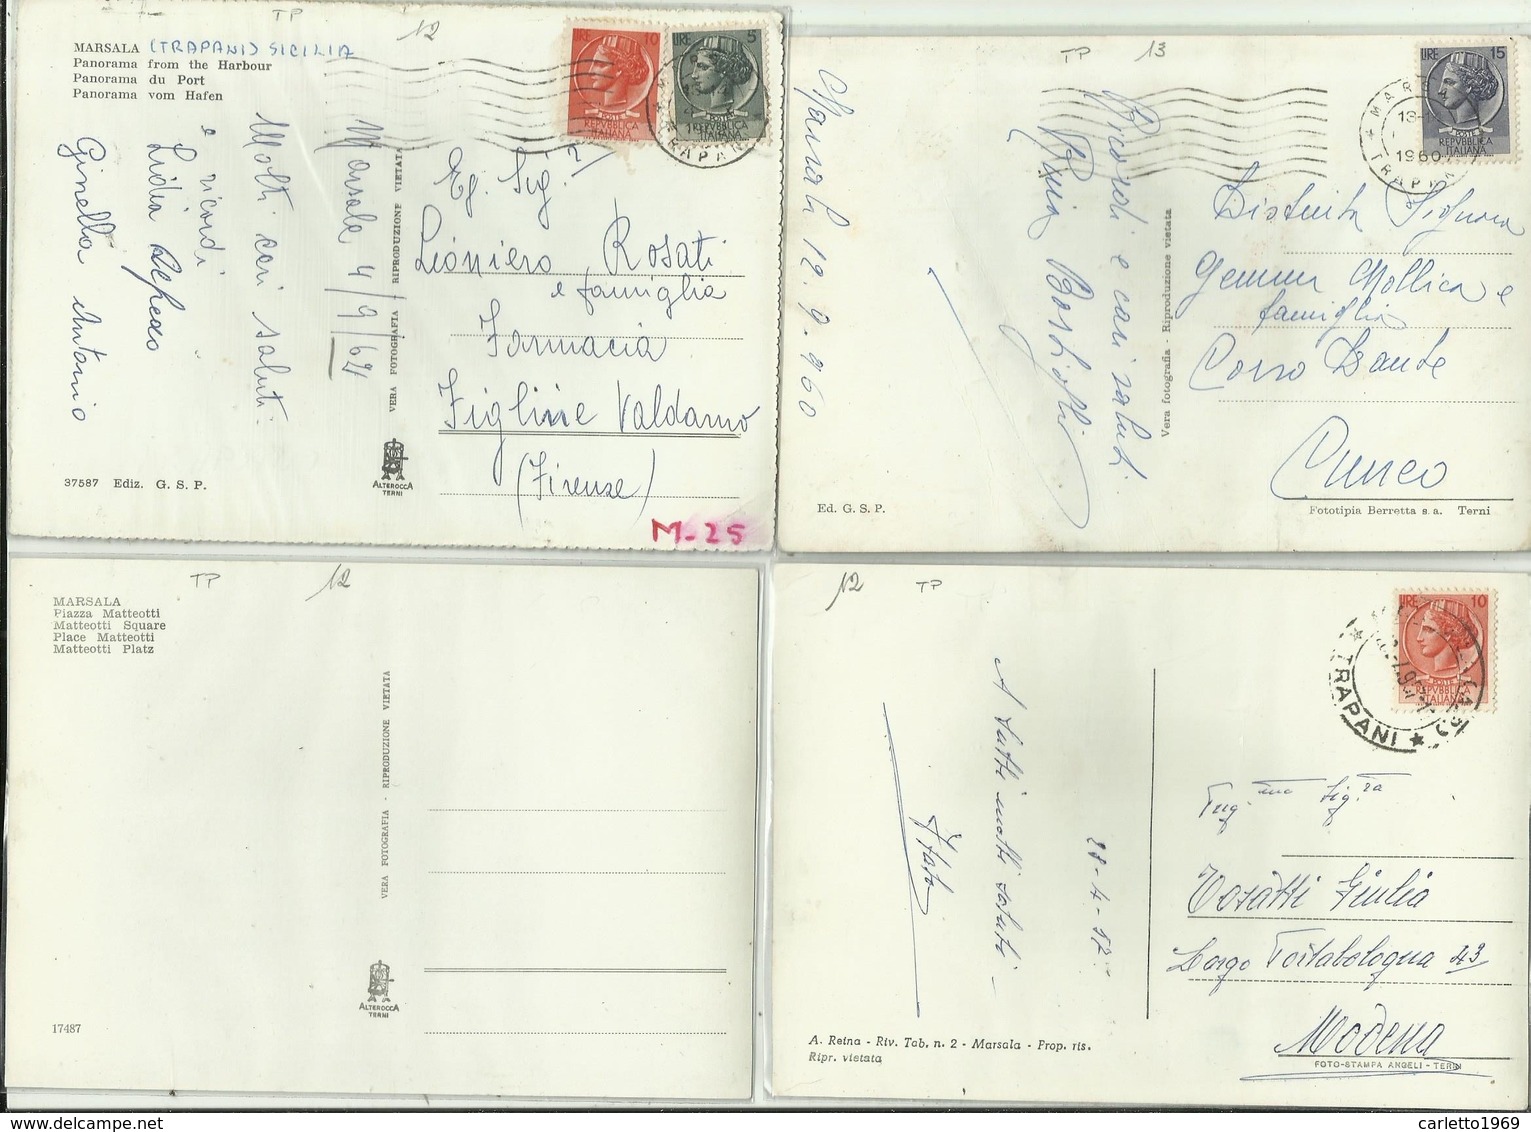 TP
12
MARSALA (TRAPANI) SICILIA
Panorama from the Harbour
Panorama du Port
Panorama vom Hafen
Molti cari saluti
e ricordi
Lidia Alfredo
Ginella Antonio
Marsala 4/9/62
VERA FOTOGRAFIA - RIPRODUZIONE VIETATA
LIRE 10
REPVBBLICA
ITALIANA
LIRE 5
REPVBBLICA
ITALIANA
TRAPANI
Eg. Sig.
Lioniero Rosati
e famiglia
Farmacia
Figline Valdarno
(Firenze)
37587 Ediz. G. S. P.
ALTEROCCA
TERNI
M-25
TP
13
LIRE 15
POSTE
REPVBBLICA
ITALIANA
1960
TRAPANI
Marsala 12.9.960
Ricordi e cari saluti
Vera fotografia - Riproduzione vietata
Distinta Signora
Gemma Mollica e
famiglia
Corso Dante
Cuneo
Ed. G. S. P.
Fototipia Berretta s.a. Terni
TP
12
MARSALA
Piazza Matteotti
Matteotti Square
Place Matteotti
Matteotti Platz
VERA FOTOGRAFIA - RIPRODUZIONE VIETATA
ALTEROCCA
TERNI
17487
12
TP
LIRE 10
POSTE
REPVBBLICA
ITALIANA
TRAPANI
28-4-57
A tutti molti saluti
Italo
Sig.ra
Rosatti Giulia
Largo Portabologna 43
Modena
A. Reina - Riv. Tab. n. 2 - Marsala - Prop. ris.
Ripr. vietata
FOTO-STAMPA ANGELI - TERNI
carletto1969